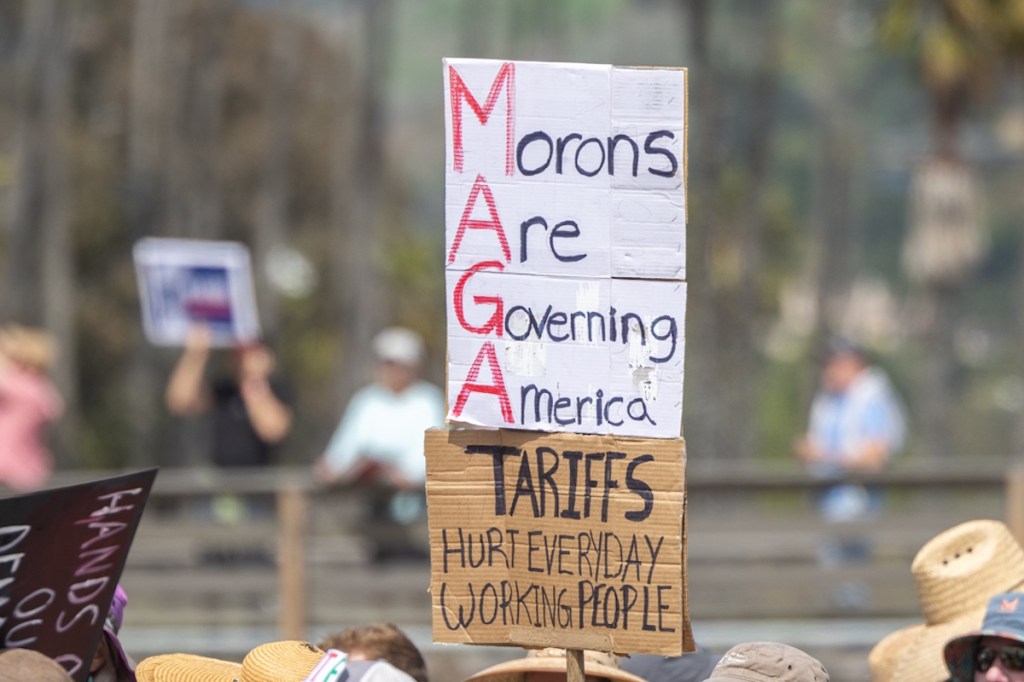 Morons
Are
Governing
America
TARIFFS
HURT EVERYDAY
WORKING PEOPLE
HANDS
OU
DEM